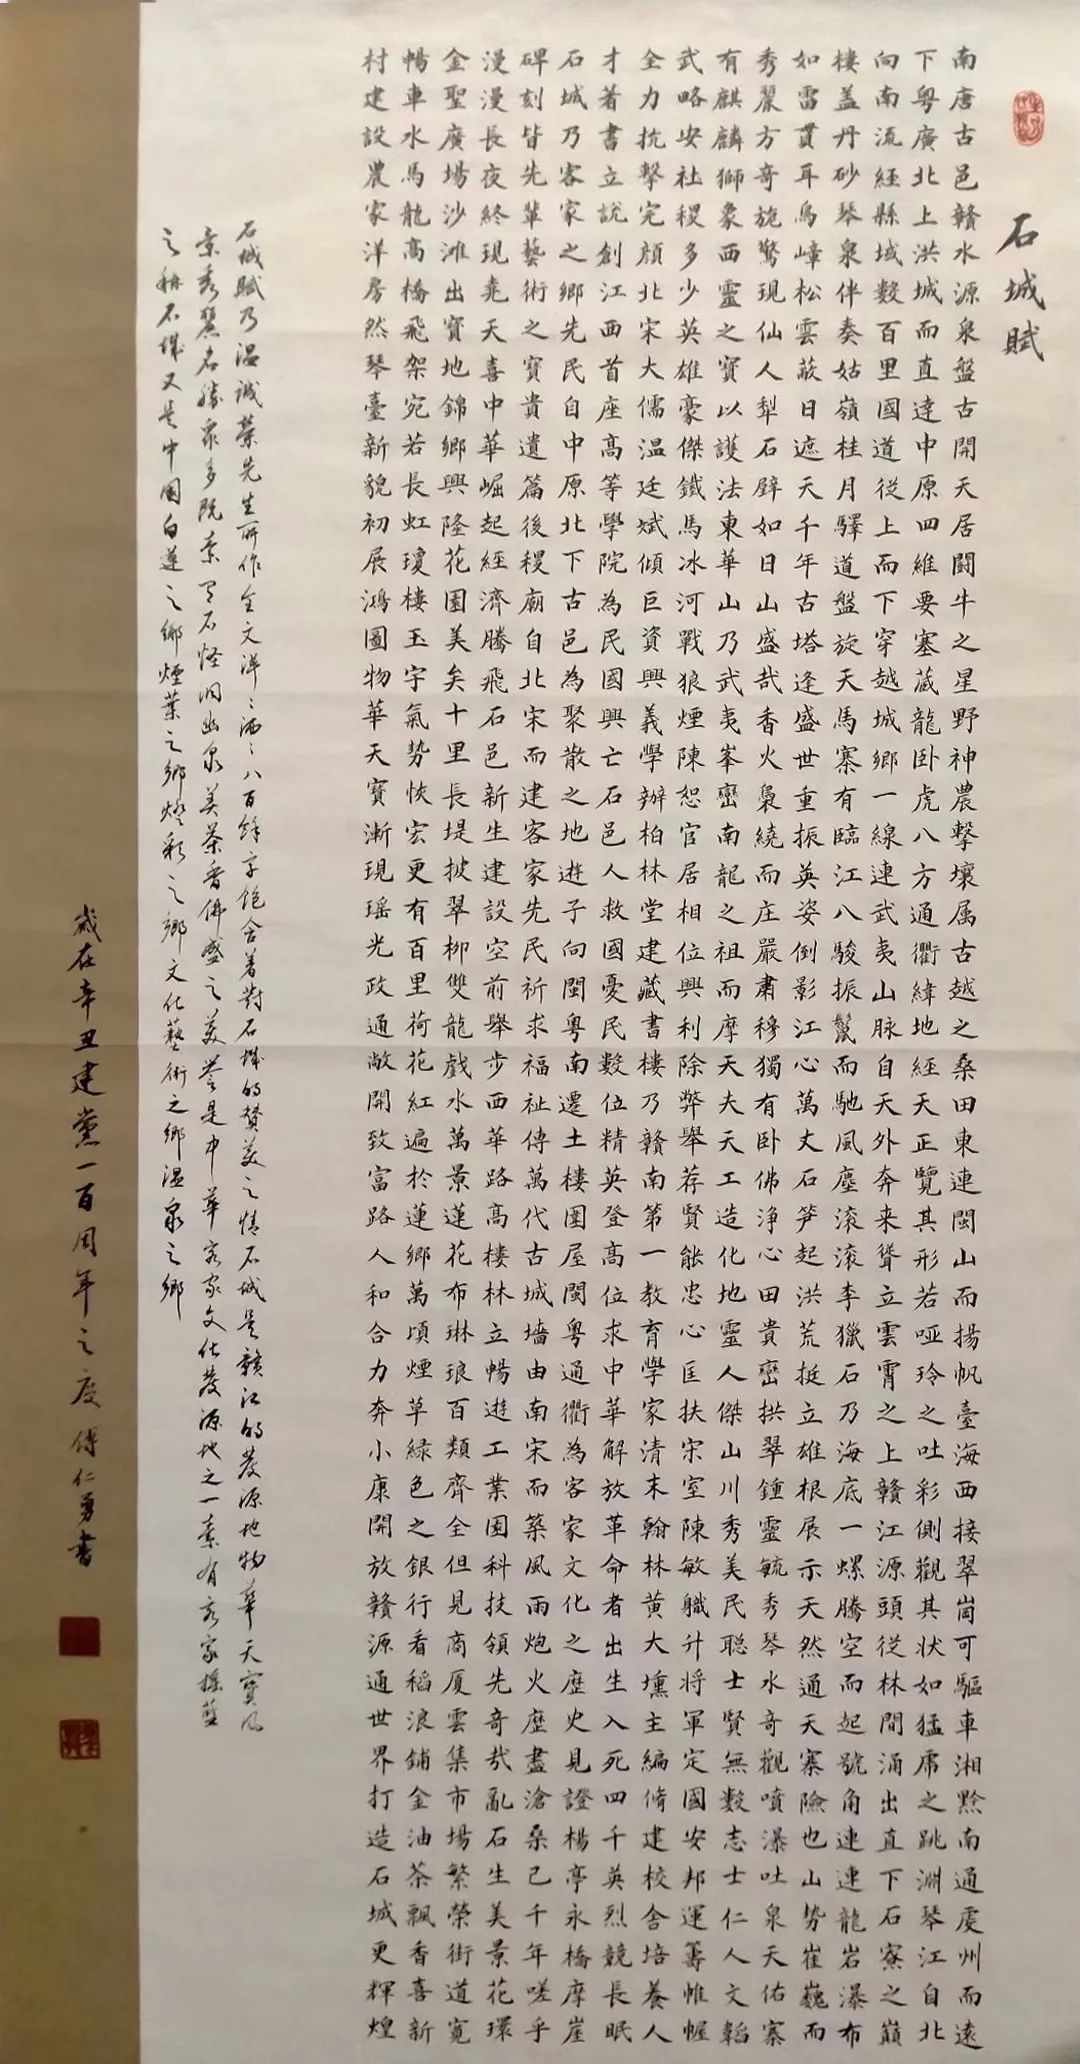 石城賦
南唐古邑贛水源泉盤古開天居鬪牛之星野神農擊壤属古越之桑田東連閩山而揚帆臺海西接翠崗可驅車湘黔南通虔州而遠
下粤廣北上洪城而直達中原四維要塞藏龍卧虎八方通衢緯地經天正覽其形若啞玲之吐彩側觀其状如猛虎之跳淵琴江自北
向南流經縣域數百里國道從上而下穿越城鄉一線連武夷山脉自天外奔来聳立雲霄之上贛江源頭從林間涌出直下石寮之巔
棲盖丹砂琴泉伴奏姑嶺桂月驛道盤旋天馬寨有臨江八駿振鬣而馳風塵滚滚李獵石乃海底一螺騰空而起號角連連龍岩瀑布
如雷貫耳烏嶂松雲蔽日遮天千年古塔逢盛世重振英姿倒影江心萬丈石笋起洪荒挺立雄根展示天然通天寨險也山势崔巍而
秀麗方奇旎驚現仙人犁石壁如日山盛哉香火裊繞而庄嚴肅穆獨有卧佛净心田貴巒拱翠鍾靈毓秀琴水奇觀噴瀑吐泉天佑寨
有麒麟獅象西靈之寶以護法東華山乃武夷峯巒南龍之祖而摩天夫天工造化地靈人傑山川秀美民聪士賢無數志士仁人文韜
武略安社稷多少英雄豪傑鐵馬冰河戰狼煙陳恕官居相位興利除弊舉荐賢能忠心匡扶宋室陳敏職升将軍定國安邦運籌帷幄
全力抗擊完顔北宋大儒温廷斌傾巨資興義學辦柏林堂建藏書樓乃贛南第一教育學家清末翰林黄大壎主編脩建校舍培養人
才著書立說創江西首座高等學院為民國興亡石邑人救國憂民數位精英登高位求中華解放革命者出生入死四千英烈競長眠
石城乃客家之鄉先民自中原北下古邑為聚散之地遊子向閩粤南遷土樓圍屋閩粤通衢為客家文化之歷史見證楊亭永橋摩崖
碑刻皆先輩藝術之寶貴遺篇後稷廟自北宋而建客家先民祈求福祉傳萬代古城墻由南宋而築風雨炮火歷盡滄桑已千年嗟乎
漫漫長夜終現堯天喜中華崛起經濟騰飛石邑新生建設空前舉步西華路高樓林立暢遊工業園科技領先奇哉亂石生美景花環
金聖廣場沙滩出寳地錦鄉興隆花園美矣十里長堤披翠柳雙龍戲水萬景蓮花布琳琅百類齊全但見商厦雲集市場繁榮街道寬
暢車水馬龍高橋飛架宛若長虹瓊樓玉宇氣勢恢宏更有百里荷花紅遍於蓮鄉萬頃煙草緑色之銀行看稻浪鋪金油茶飄香喜新
村建設農家洋房然琴臺新貌初展鴻圖物華天寶漸現瑶光政通敞開致富路人和合力奔小康開放贛源通世界打造石城更輝煌
石城賦乃温诚榮先生所作全文洋〻洒〻八百餘字饱含着對石城的赞美之情石城是贛江的發源地物華天寶风
景秀麗名勝衆多既素有石怪洞幽泉美茶香佛盛之美誉是中華客家文化發源地之一素有客家摇籃
之稱石城又是中國白蓮之鄉煙葉之鄉燈彩之鄉文化藝術之鄉温泉之鄉
歲在辛丑建黨一百周年之度傅仁勇書